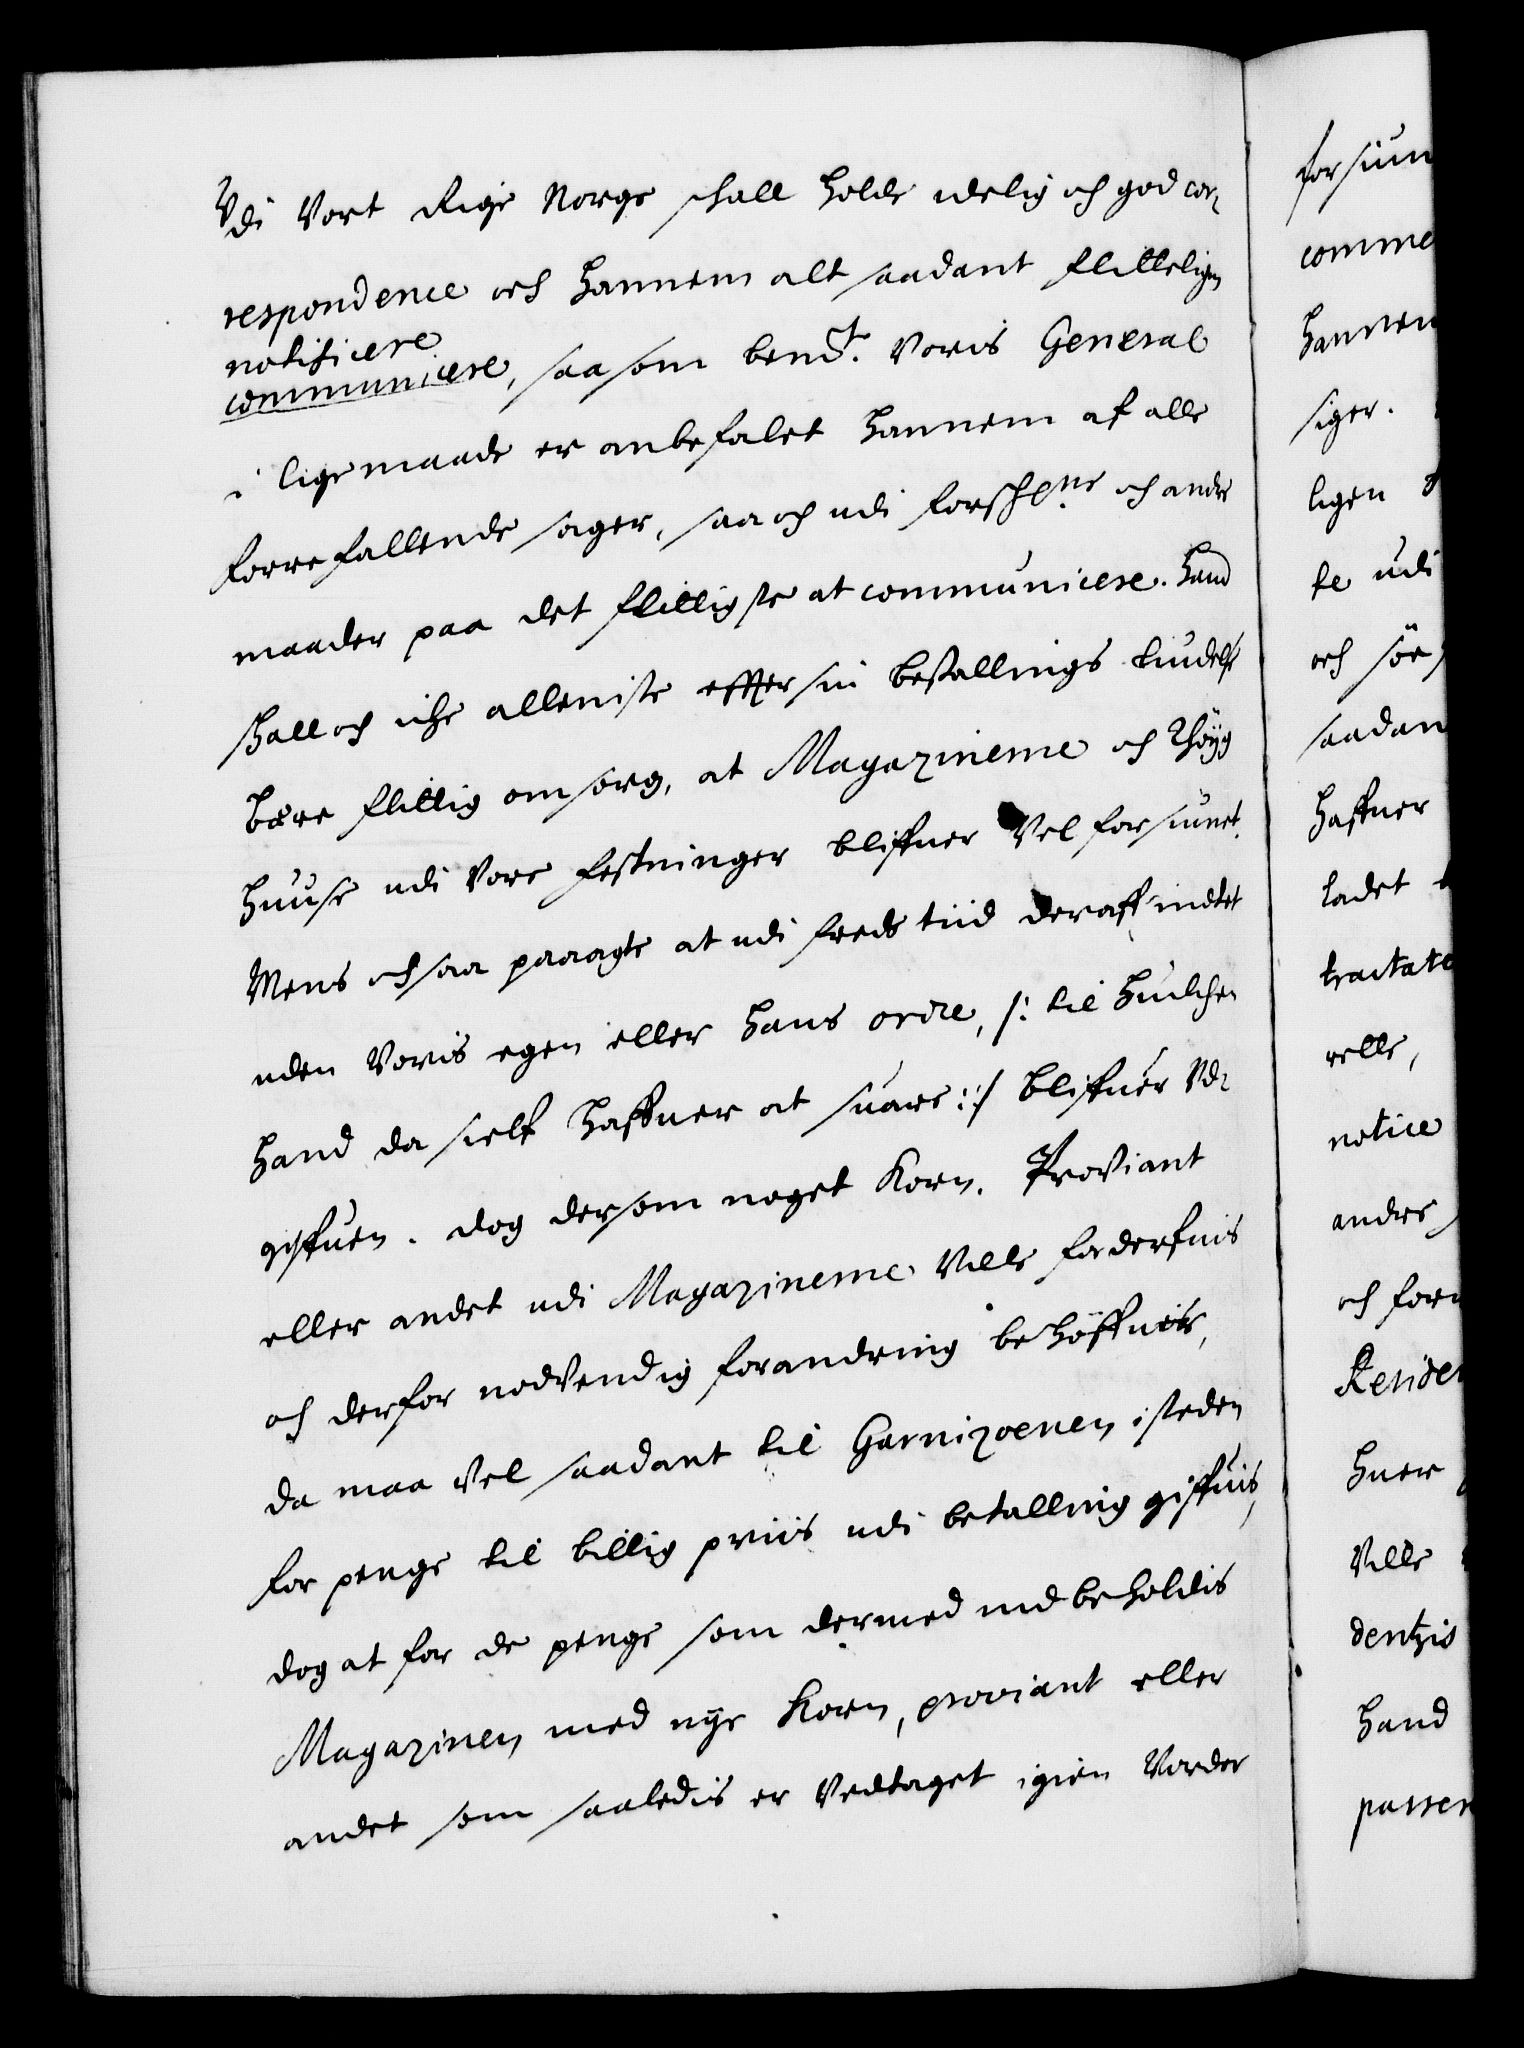 Udi Vort Rige Norge schall holde idelig och god cor-
respondence och hannem alt saadant flitteligen
notificere
communicere, saa som bemt. Voris General
i lige maade er anbefalet hannem af alle
forrefallende sager, saa och udi forschne och andre
maader paa det flittigste at communicere. Hand
schall och iche alleniste effter sin bestallings liudelse
bære flittig omsorg, at Magazinerne och Thöÿg
huuse udi Vore festninger bliffuer Vel forsiunet.
Mens och saa paaagte at udi freds tiid deraff indtet
uden Voris egen eller hans ordre, /: til huilchen
hand da sielf haffuer at suare :/ bliffuer Ud-
giffuen. dog dersom noget Korn, Proviant
eller andet udi Magazinerne Ville forderfuis
och derfor nodvendig forandring behöffuis,
da maa Vel saadant til Garnizoenen isteden
for penge til billig priis udi betalling giffuis,
dog at for de penge som dermed indbeholdis
Magazinen med nÿe Korn, proviant eller
andet som saaledis er Vedtaget igien Vorder
forsiun
comme
hannem
siger.
ligen
te udi
och söe
saadan
haffuer
ladet
tractate
relle,
notice
andre
och forn
Residen
huer
Ville
dentzis
hand
passer